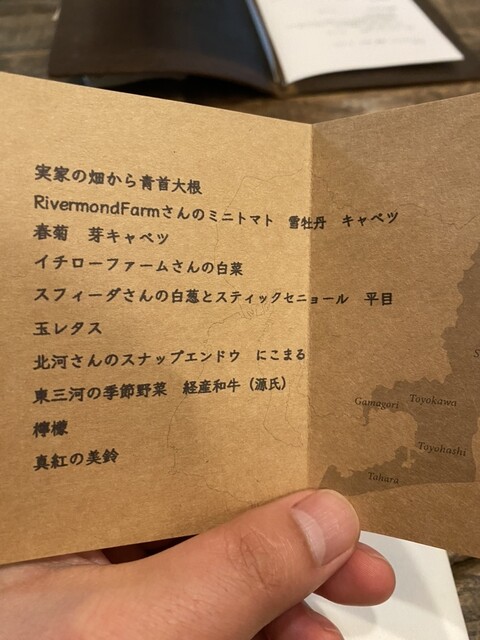 実家の畑から青首大根
RivermondFarmさんのミニトマト　雪牡丹　キャベツ
春菊　芽キャベツ
イチローファームさんの白菜
スフィーダさんの白葱とスティックセニョール　平目
玉レタス
北河さんのスナップエンドウ　にこまる
東三河の季節野菜　経産和牛（源氏）
檸檬
真紅の美鈴
Gamagori
Toyokawa
Toyohashi
Tahara